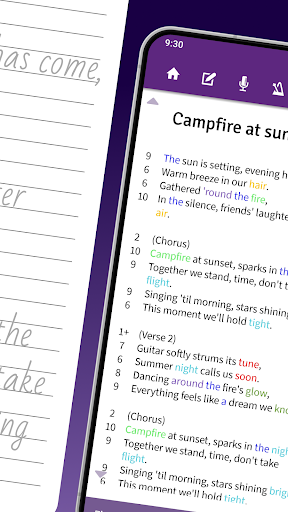 has come,
the
take
9:30
Campfire at sun
9 The sun is setting, evening h
6 Warm breeze in our hair.
6 Gathered 'round the fire,
10 In the silence, friends' laughte
air.
2 (Chorus)
10 Campfire at sunset, sparks in the nig
9 Together we stand, time, don't t
flight.
9 Singing 'til morning, stars shining
6 This moment we'll hold tight.
1+ (Verse 2)
7 Guitar softly strums its tune,
6 Summer night calls us soon.
8 Dancing around the fire's glow,
9 Everything feels like a dream we kno
2 (Chorus)
10 Campfire at sunset, sparks in the nigh
9 Together we stand, time, don't take
flight.
9 Singing 'til morning, stars shining brigh
6 This moment we'll hold tight.